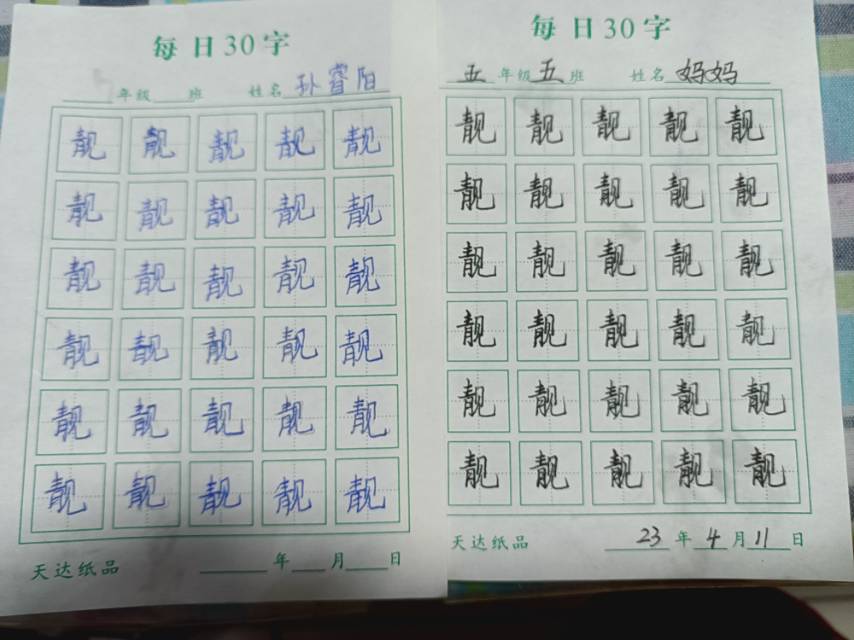 每日30字
年级 班 姓名 孙睿阳
靓 靓 靓 靓 靓
靓 靓 靓 靓 靓
靓 靓 靓 靓 靓
靓 靓 靓 靓 靓
靓 靓 靓 靓 靓
靓 靓 靓 靓 靓
天达纸品 年 月 日
每日30字
五年级五班 姓名 妈妈
靓 靓 靓 靓 靓
靓 靓 靓 靓 靓
靓 靓 靓 靓 靓
靓 靓 靓 靓 靓
靓 靓 靓 靓 靓
靓 靓 靓 靓 靓
天达纸品 23年4月11日